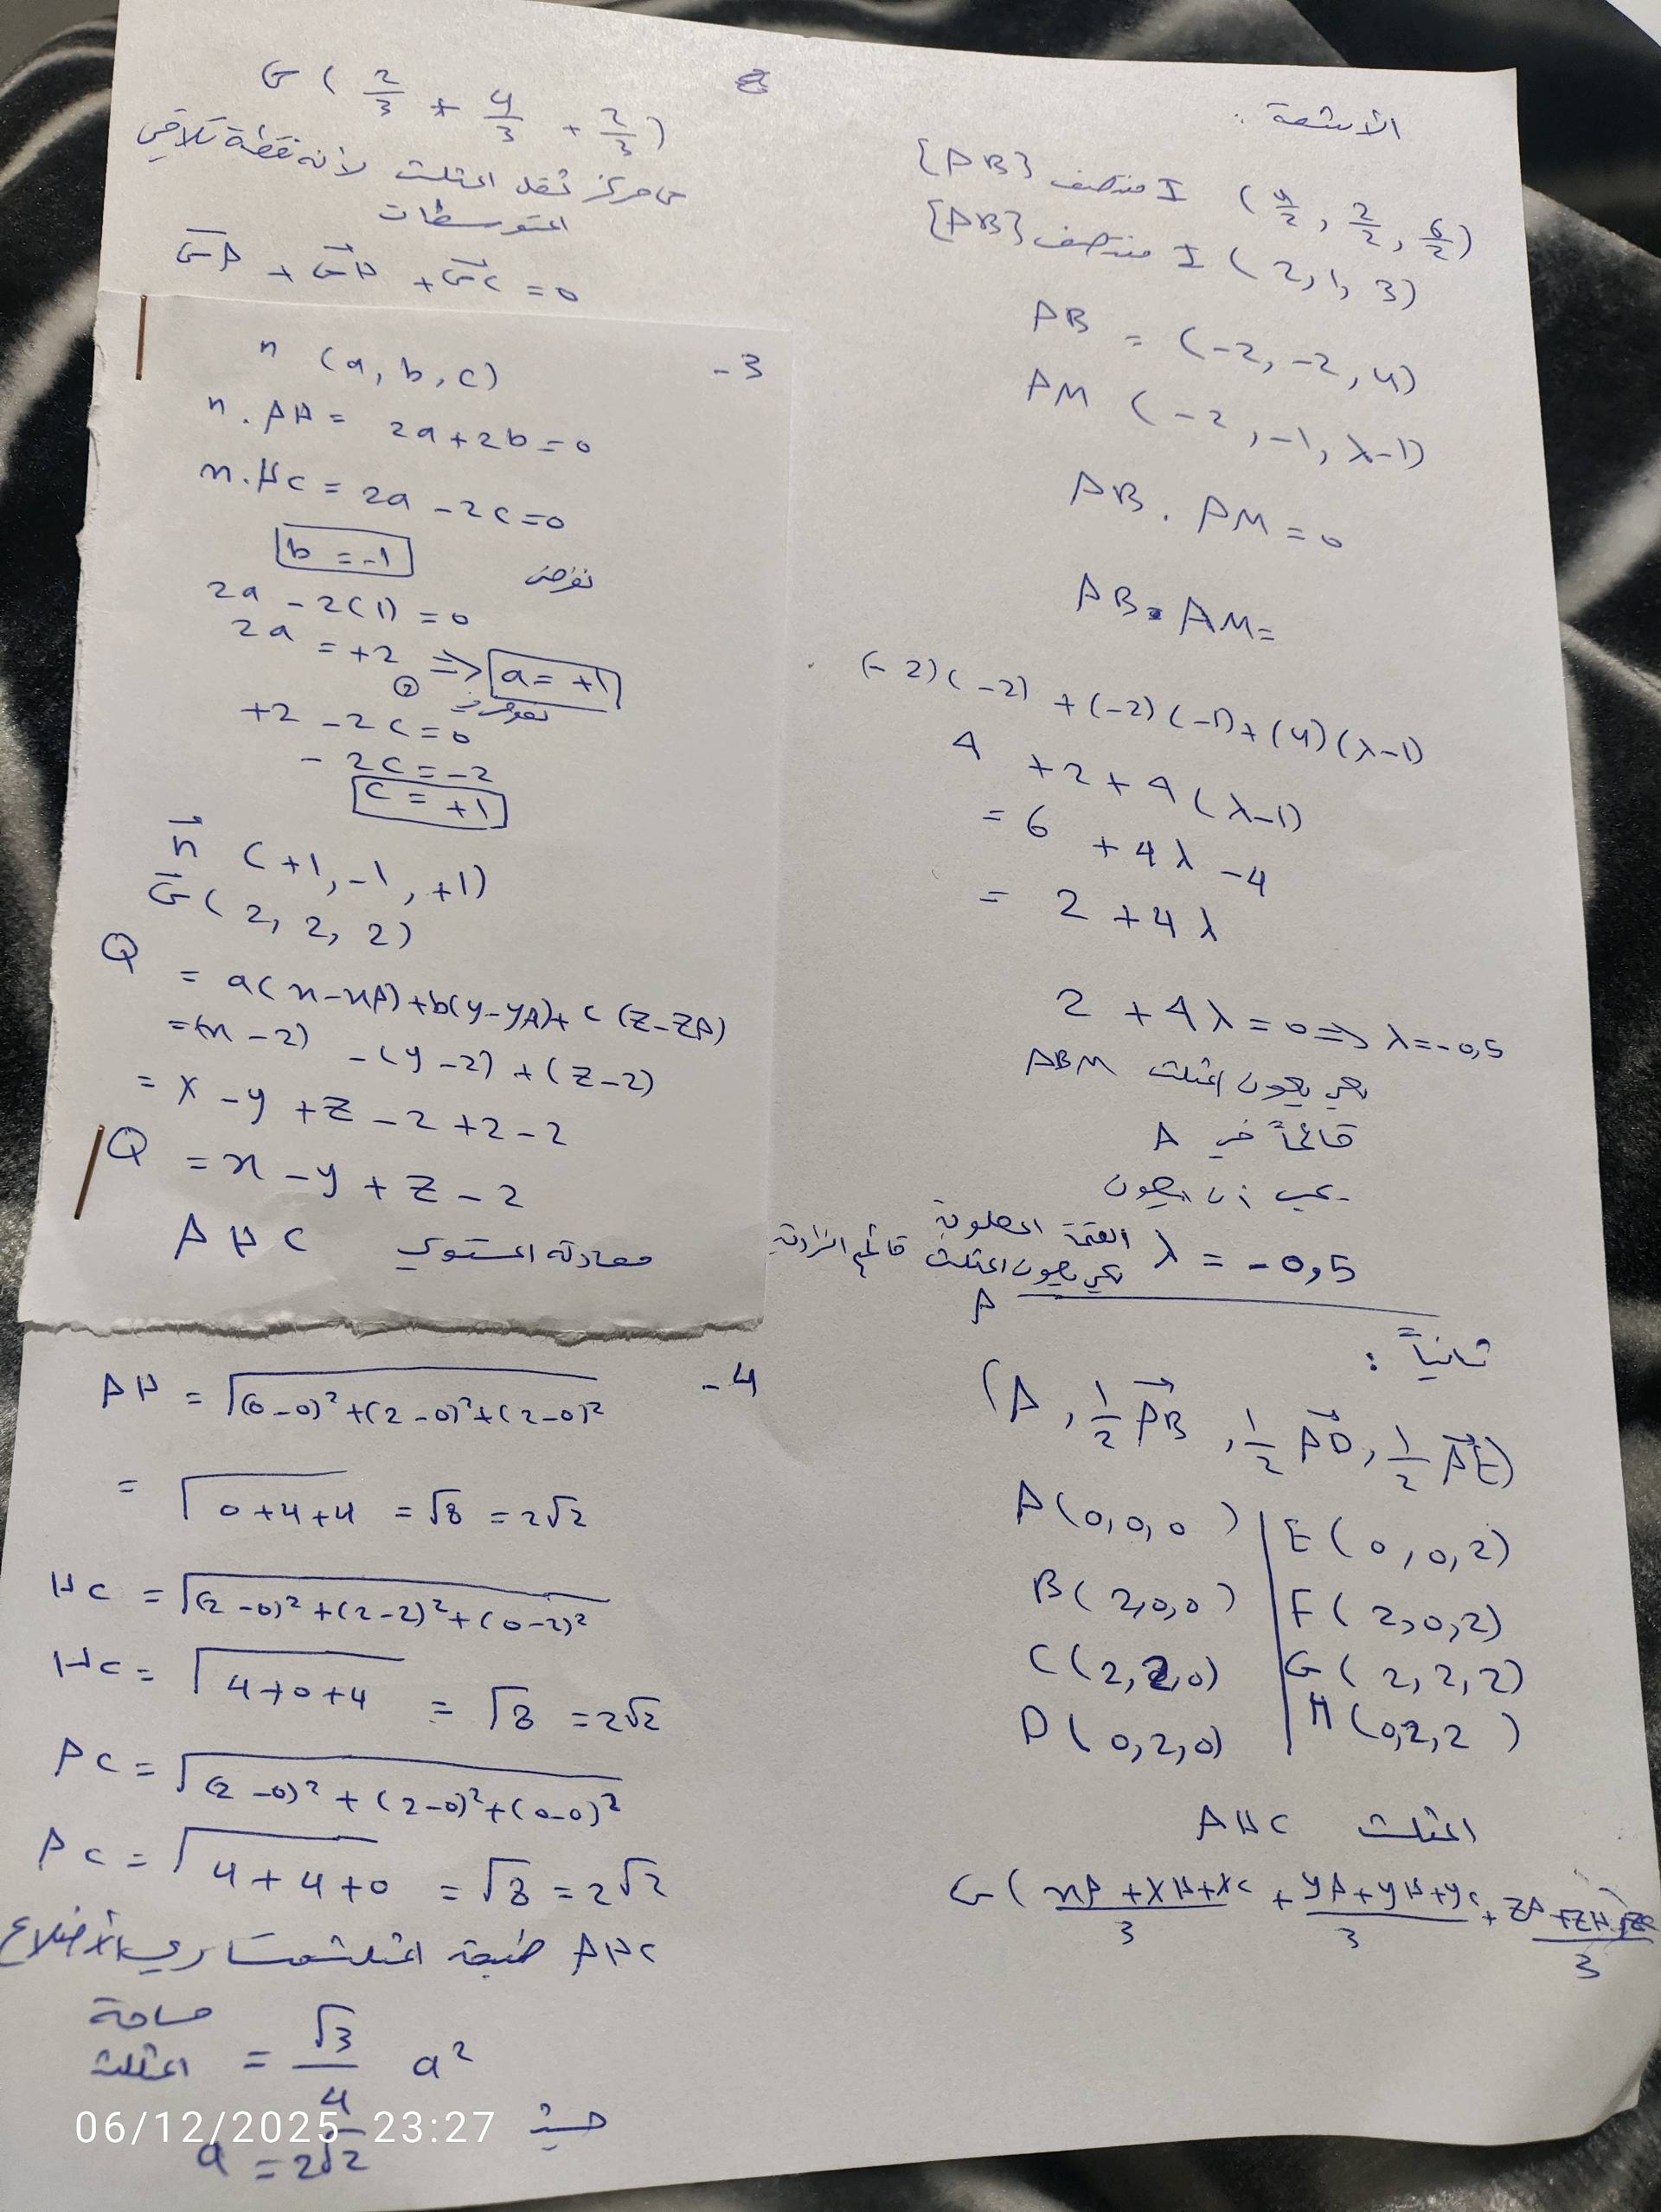 الأشعة :
[AB] منتصف I (4/2, 2/2, 6/2)
[AB] منتصف I (2, 1, 3)
AB = (-2, -2, 4)
AM (-2, -1, λ-1)
AB . AM = 0
AB . AM =
(-2)(-2) + (-2)(-1) + (4)(λ-1)
4 + 2 + 4(λ-1)
= 6 + 4λ - 4
= 2 + 4λ
2 + 4λ = 0 => λ = -0,5
لكي يكون المثلث ABM
قائماً في A
يجب أن يكون
λ = -0,5 القيمة المطلوبة
لكي يكون المثلث قائم الزاوية
A
ثانياً :
(A, 1/2 AB, 1/2 AD, 1/2 AE)
A(0,0,0) | E(0,0,2)
B(2,0,0) | F(2,0,2)
C(2,2,0) | G(2,2,2)
D(0,2,0) | H(0,2,2)
المثلث AHC
G( xA+xH+xC/3 + yA+yH+yC/3 + zA+zH+zC/3
G(2/3 + 4/3 + 2/3)
مركز ثقل المثلث لأنه نقطة تلاقي
المتوسطات
GA + GH + GC = 0
-3
n (a, b, c)
n . AH = 2a + 2b = 0
n . HC = 2a - 2c = 0
نفرض b = -1
2a - 2(1) = 0
2a = +2 => a = +1
نعوض في ②
+2 - 2c = 0
- 2c = -2
c = +1
n (+1, -1, +1)
G(2, 2, 2)
Q = a(x-xA) + b(y-yA) + c(z-zA)
= (x-2) - (y-2) + (z-2)
= x - y + z - 2 + 2 - 2
Q = x - y + z - 2
معادلة المستوي AHC
-4
AH = √(0-0)² + (2-0)² + (2-0)²
= √0+4+4 = √8 = 2√2
HC = √(2-0)² + (2-2)² + (0-2)²
HC = √4+0+4 = √8 = 2√2
AC = √(2-0)² + (2-0)² + (0-0)²
AC = √4+4+0 = √8 = 2√2
AHC طبيعة المثلث متساوي الأضلاع
مساحة المثلث = √3/4 a²
حيث a = 2√2
06/12/2025 23:27